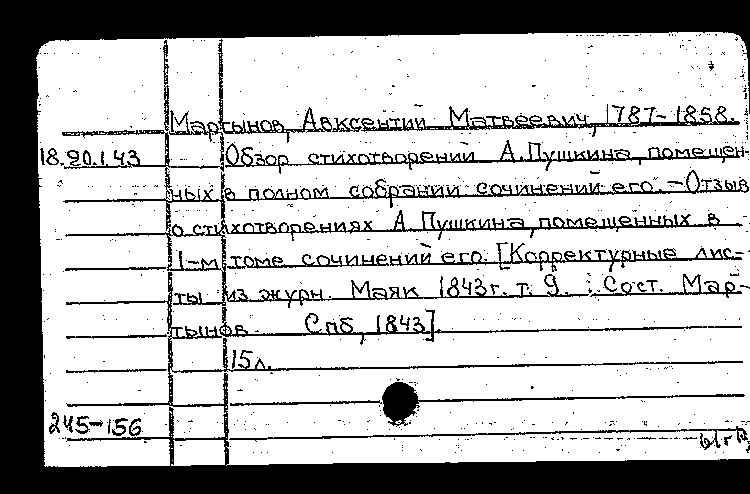 Мартынов, Авксентий Матвеевич, 1787-1858.
18.90.1.43 Обзор стихотворений А.Пушкина, помещен-
ных в полном собрании сочинений его. - Отзыв
о стихотворениях А.Пушкина, помещенных в
1-м томе сочинений его. [Корректурные лис-
ты из журн. Маяк 1843г. т. 9. : Сост. Мар-
тынов. Спб, 1843].
15л.
245-156